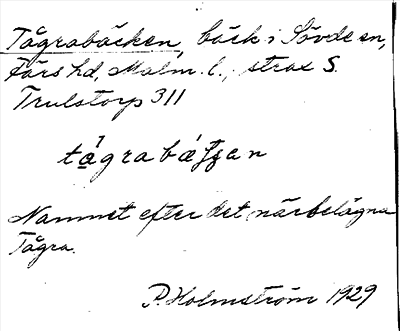 Tågrabäcken, bäck i Sövde sn,
Färs hd, Malm. l., strax S.
Trulstorp 311
Namnet efter det närbelägna
Tågra.
P. Holmström 1929